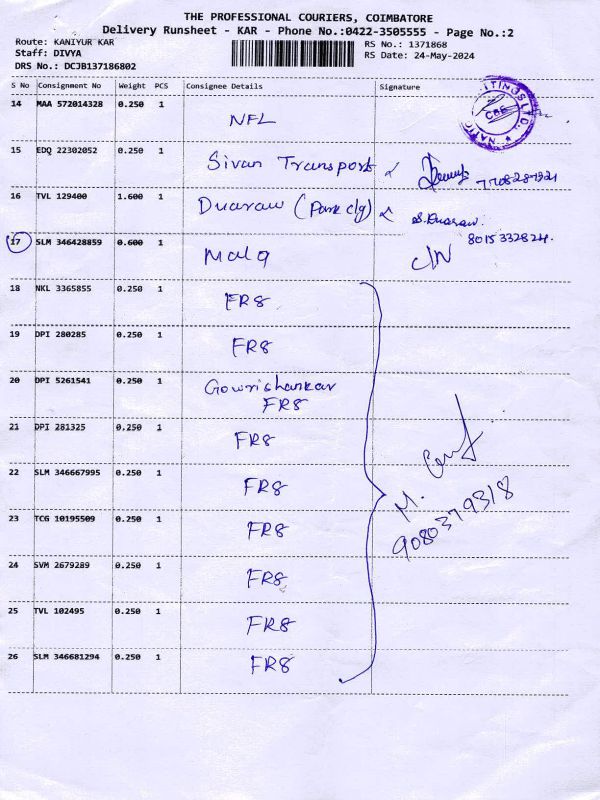 THE PROFESSIONAL COURIERS, COIMBATORE
Delivery Runsheet - KAR - Phone No.:0422-3505555 - Page No.:2
Route: KANIYUR KAR
Staff: DIVYA
DRS No.: DCJB137186802
RS No.: 1371868
RS Date: 24-May-2024
S No Consignment No Weight PCS Consignee Details Signature
14 MAA 572014328 0.250 1 NFL
CBE
15 EDQ 22302052 0.250 1 Sivan Transport
16 TVL 129400 1.600 1 Duaraw (Park clg) S. Duaraw.
8015332824.
17 SLM 346428859 0.600 1 Mala C/N
18 NKL 3365855 0.250 1 FR8
19 DPI 280285 0.250 1 FR8
20 DPI 5261541 0.250 1 Gowrishankar
FR8
21 DPI 281325 0.250 1 FR8
22 SLM 346667995 0.250 1 FR8
M.
9080379318
23 TCG 10195509 0.250 1 FR8
24 SVM 2679289 0.250 1 FR8
25 TVL 102495 0.250 1 FR8
26 SLM 346681294 0.250 1 FR8